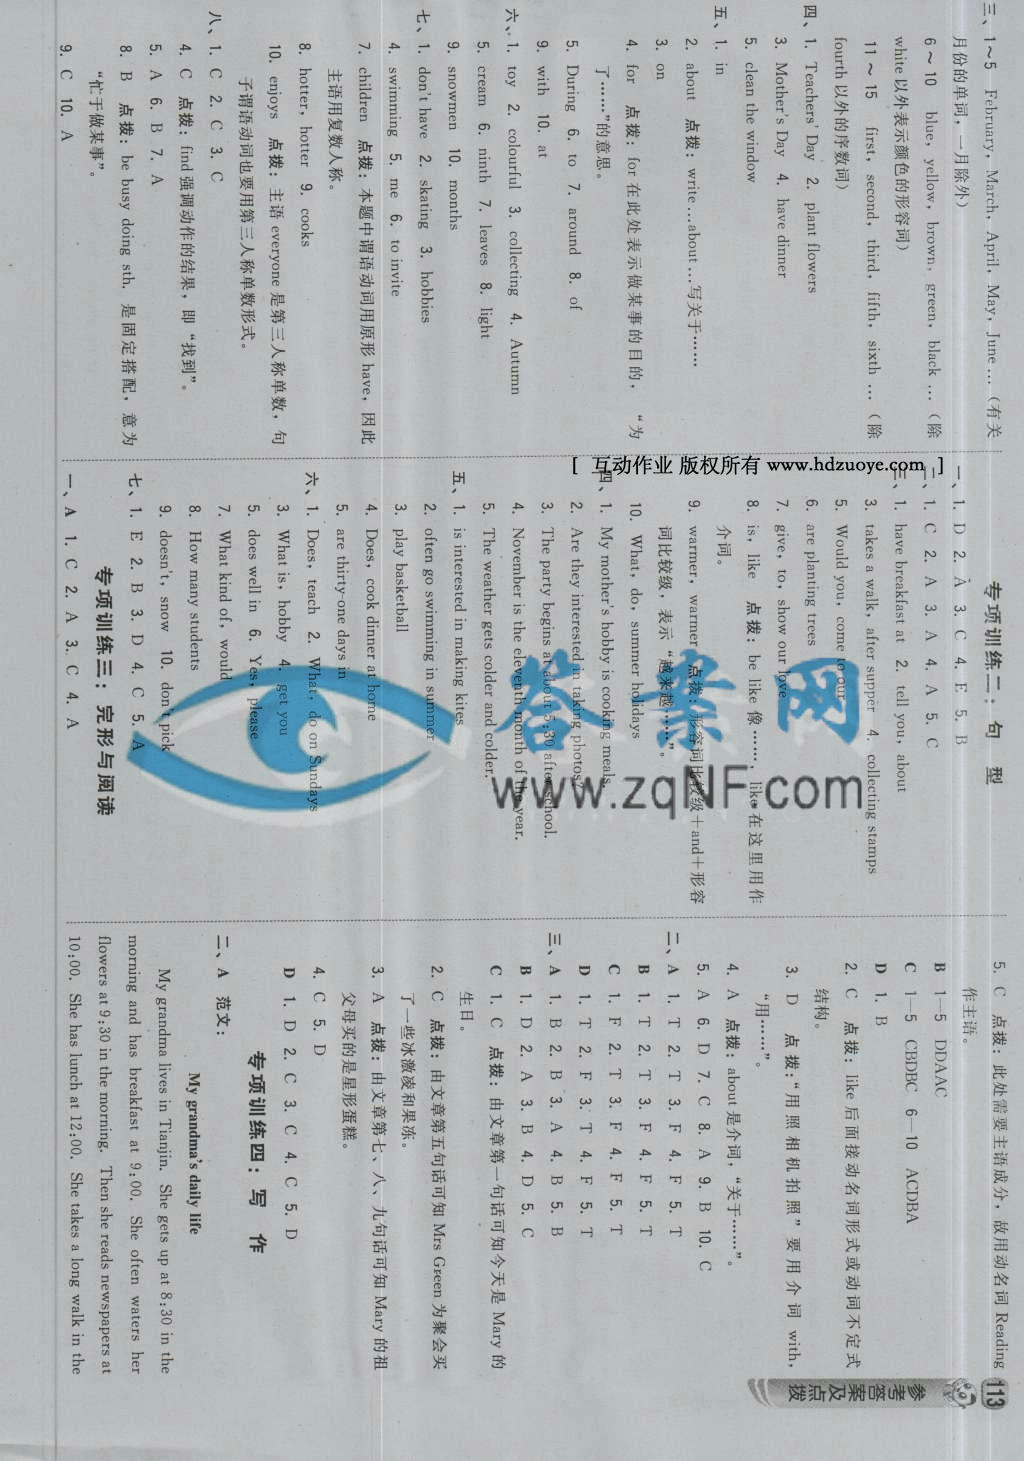 三、1～5 February, March, April, May, June …（有关
月份的单词，一月除外）
6～10 blue, yellow, brown, green, black …（除
white 以外表示颜色的形容词）
11～15 first, second, third, fifth, sixth …（除
fourth 以外的序数词）
四、1. Teachers' Day 2. plant flowers
3. Mother's Day 4. have dinner
5. clean the window
五、1. in
2. about 点拨：write … about … 写关于……
3. on
4. for 点拨：for 在此处表示做某事的目的，“为
了……”的意思。
5. During 6. to 7. around 8. of
9. with 10. at
六、1. toy 2. colourful 3. collecting 4. Autumn
5. cream 6. ninth 7. leaves 8. light
9. snowmen 10. months
七、1. don't have 2. skating 3. hobbies
4. swimming 5. me 6. to invite
7. children 点拨：本题中谓语动词用原形 have，因此
主语用复数人称。
8. hotter, hotter 9. cooks
10. enjoys 点拨：主语 everyone 是第三人称单数，句
子谓语动词也要用第三人称单数形式。
八、1. C 2. C 3. C
4. C 点拨：find 强调动作的结果，即“找到”。
5. A 6. B 7. A
8. B 点拨：be busy doing sth. 是固定搭配，意为
“忙于做某事”。
9. C 10. A
专项训练二：句 型
一、1. D 2. A 3. C 4. E 5. B
二、1. C 2. A 3. A 4. A 5. C
三、1. have breakfast at 2. tell you, about
3. takes a walk, after supper 4. collecting stamps
5. Would you, come to our
6. are planting trees
7. give, to, show our love
8. is, like 点拨：be like 像……，like 在这里用作
介词。
9. warmer, warmer 点拨：形容词比较级＋and＋形容
词比较级，表示“越来越……”。
10. What, do, summer holidays
四、1. My mother's hobby is cooking meals.
2. Are they interested in taking photos?
3. The party begins at about 5:30 after school.
4. November is the eleventh month of the year.
5. The weather gets colder and colder.
五、1. is interested in making kites
2. often go swimming in summer
3. play basketball
4. Does, cook dinner at home
5. are thirty-one days in
六、1. Does, teach 2. What, do on Sundays
3. What is, hobby 4. get you
5. does well in 6. Yes, please
7. What kind of, would
8. How many students
9. doesn't, snow 10. don't pick
七、1. E 2. B 3. D 4. C 5. A
专项训练三：完形与阅读
一、A 1. C 2. A 3. C 4. A
5. C 点拨：此处需要主语成分，故用动名词 Reading
作主语。
B 1—5 DDAAC
C 1—5 CBDBC 6—10 ACDBA
D 1. B
2. C 点拨：like 后面接动名词形式或动词不定式
结构。
3. D 点拨：“用照相机拍照”要用介词 with，
“用……”。
4. A 点拨：about 是介词，“关于……”。
5. A 6. D 7. C 8. A 9. B 10. C
二、A 1. T 2. T 3. F 4. F 5. T
B 1. T 2. T 3. F 4. F 5. T
C 1. F 2. T 3. F 4. F 5. T
D 1. T 2. F 3. T 4. F 5. T
三、A 1. B 2. B 3. A 4. A 5. B
B 1. D 2. A 3. B 4. D 5. C
C 1. C 点拨：由文章第一句话可知今天是 Mary 的
生日。
2. C 点拨：由文章第五句话可知 Mrs Green 为聚会买
了一些冰激凌和果冻。
3. A 点拨：由文章第七、八、九句话可知 Mary 的祖
父母买的是星形蛋糕。
4. C 5. D
D 1. D 2. C 3. C 4. C 5. D
专项训练四：写 作
二、A 范文：
My grandma's daily life
My grandma lives in Tianjin. She gets up at 8:30 in the
morning and has breakfast at 9:00. She often waters her
flowers at 9:30 in the morning. Then she reads newspapers at
10:00. She has lunch at 12:00. She takes a long walk in the
参考答案及点拨
113
[ 互动作业 版权所有 www.hdzuoye.com ]
答案网
www.zqNF.com